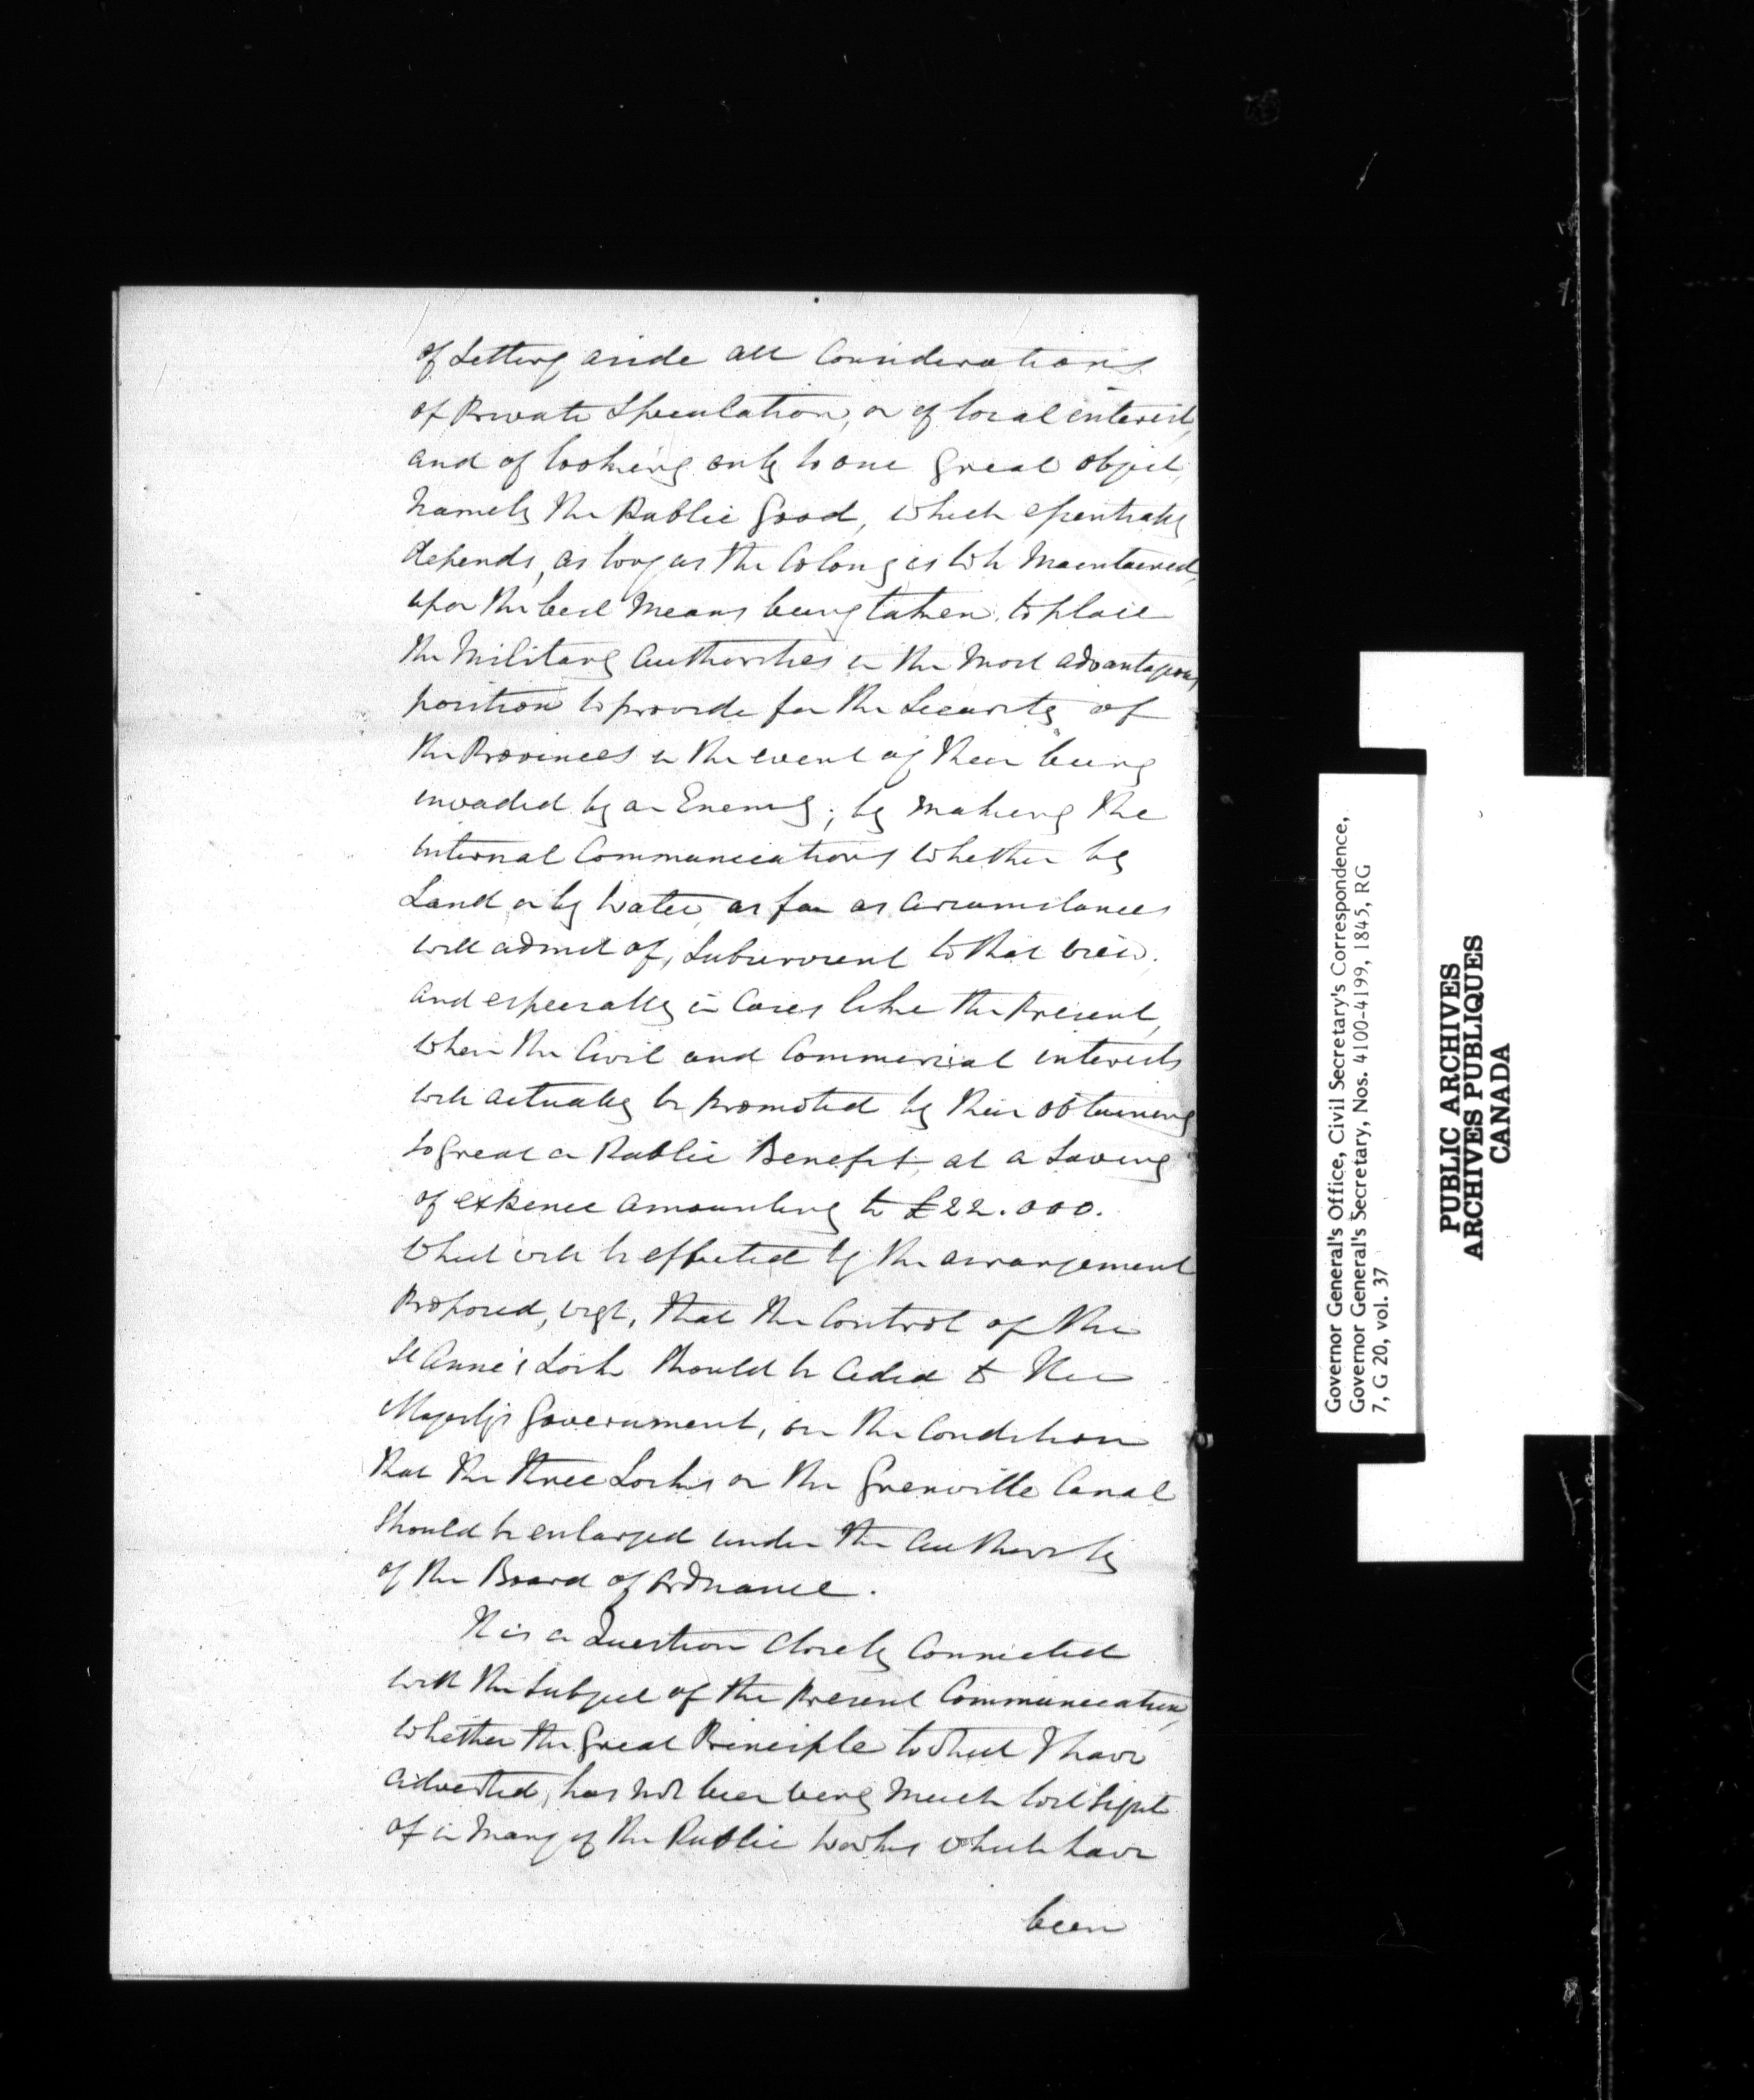 of Setting aside all Considerations
of Private Speculation, or of local interest,
and of looking only to one great object,
namely the Public Good, which essentially
depends, as long as the Colony is to be Maintained,
upon the best Means being taken, to place
the Military Authorities in the Most advantageous
position to provide for the Security of
the Provinces in the event of their being
invaded by an Enemy; by making the
internal Communications whether by
Land or by Water, as far as Circumstances
will admit of, Subservient to that view.
and especially in Cases like the Present,
when the Civil and Commercial interests
will actually be promoted by their obtaining
so great a Public Benefit at a Saving
of expence amounting to £22.000.
which will be effected by the arrangement
Proposed, vizt, that the Control of the
St Anne's Lock should be Ceded to Her
Majesty's Government, on the Condition
that the three Locks on the Grenville Canal
should be enlarged under the Authority
of the Board of Ordnance.
It is a Question Closely Connected
with the Subject of the Present Communication,
whether the Great Principle to which I have
adverted, has not been very Much lost Sight
of in Many of the Public Works which have
been
Governor General's Office, Civil Secretary's Correspondence,
Governor General's Secretary, Nos. 4100-4199, 1845, RG
7, G 20, vol. 37
PUBLIC ARCHIVES
ARCHIVES PUBLIQUES
CANADA